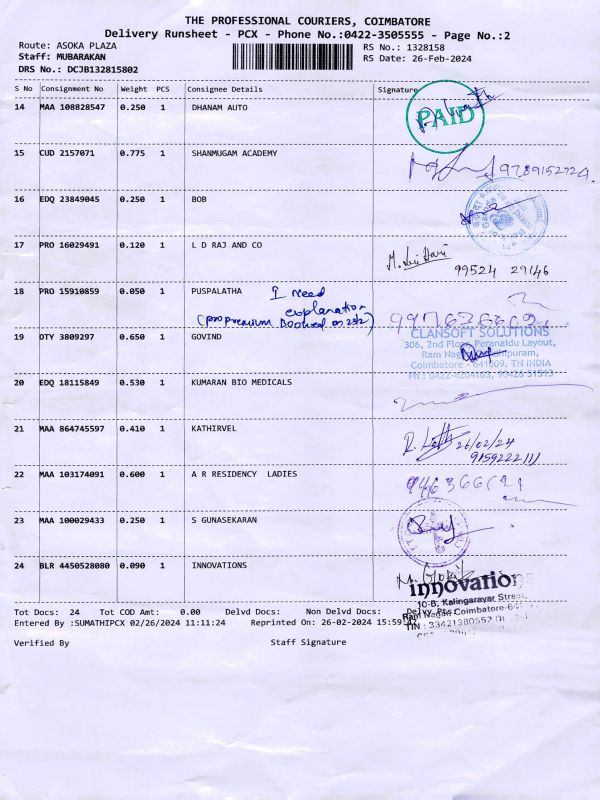 THE PROFESSIONAL COURIERS, COIMBATORE
Delivery Runsheet - PCX - Phone No.:0422-3505555 - Page No.:2
Route: ASOKA PLAZA RS No.: 1328158
Staff: MUBARAKAN RS Date: 26-Feb-2024
DRS No.: DCJB132815802
S No Consignment No Weight PCS Consignee Details Signature
14 MAA 108828547 0.250 1 DHANAM AUTO
PAID
15 CUD 2157071 0.775 1 SHANMUGAM ACADEMY
16 EDQ 23849045 0.250 1 BOB
17 PRO 16029491 0.120 1 L D RAJ AND CO
99524 29146
18 PRO 15910859 0.050 1 PUSPALATHA I need
explanation
(pro premium Booked on 23/2)
19 DTY 3809297 0.650 1 GOVIND
CLANSOFT SOLUTIONS
306, 2nd Floor, Peranaidu Layout,
Ram Nagar
Coimbatore - 641009. TN INDIA
Ph : 0422-4204163,
20 EDQ 18115849 0.530 1 KUMARAN BIO MEDICALS
21 MAA 864745597 0.410 1 KATHIRVEL
26/02/24
22 MAA 103174091 0.600 1 A R RESIDENCY LADIES
23 MAA 100029433 0.250 1 S GUNASEKARAN
24 BLR 4450528080 0.090 1 INNOVATIONS
innovation
10-B, Kalingarayar Street,
Ram Nagar, Coimbatore-641
TIN : 33421380552
Tot Docs: 24 Tot COD Amt: 0.00 Delvd Docs: Non Delvd Docs: Delvy Pts:
Entered By :SUMATHIPCX 02/26/2024 11:11:24 Reprinted On: 26-02-2024 15:59:
Verified By Staff Signature